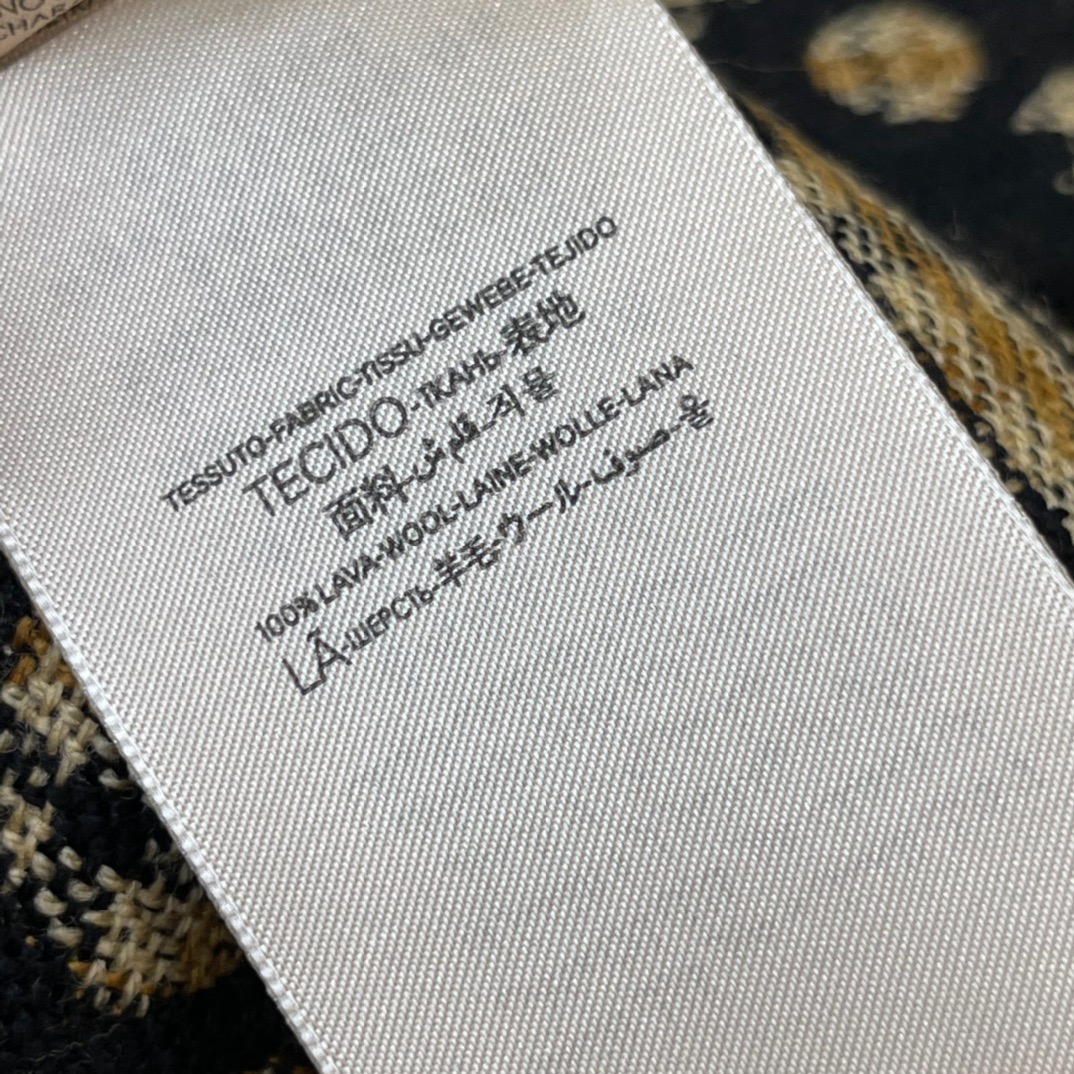 TESSUTO-FABRIC-TISSU-GEWEBE-TEJIDO
TECIDO-ТКАНЬ-表地
面料-قماش-직물
100% LAVA-WOOL-LAINE-WOLLE-LANA
LÃ-ШЕРСТЬ-羊毛-ウール-صوف-울